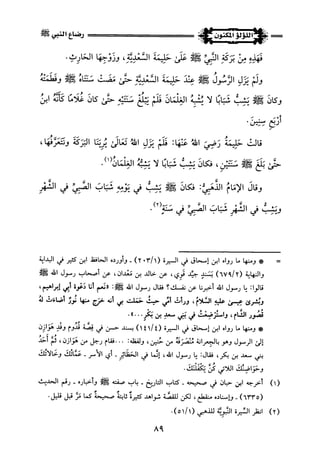 اللؤلؤ المكنون
رضاع النبي ﷺ
فهذه مِنْ بَرَكَةِ النَّبِيِّ ﷺ عَلَى حَلِيمَةَ السَّعْدِيَّةِ، وَزَوْجِهَا الحَارِثِ.
ولَمْ يَزَلِ الرَّسُولُ ﷺ عِنْدَ حَلِيمَةَ السَّعْدِيَّةِ حتَّى مَضَتْ سَنَتَاهُ ﷺ وفَطَمَتْهُ
وكانَ ﷺ يَشِبُّ شَبَابًا لا يُشْبِهُ الغِلْمَانَ فَلَمْ يَبْلُغْ سَنَتَيْهِ حتَّى كانَ غُلَامًا كَأَنَّهُ ابنُ
أرْبَعِ سِنِينَ.
قالتْ حَلِيمَةُ رَضِيَ اللهُ عَنْهَا: فَلَمْ يَزَلِ اللهُ تَعَالَى يُرِينَا البَرَكَةَ ونَتَعَرَّفُهَا،
حتَّى بَلَغَ ﷺ سَنَتَيْنِ، فكانَ يَشِبُّ شَبَابًا لا يَشِبُّهُ الغِلْمَانُ(١).
وقالَ الإمَامُ الذَّهَبِيُّ: فكانَ ﷺ يَشِبُّ في يَوْمِهِ شَبَابَ الصَّبِيِّ في الشَّهْرِ
ويَشِبُّ في الشَّهْرِ شَبَابَ الصَّبِيِّ في سَنَةٍ(٢).
= * ومنها ما رواه ابن إسحاق في السيرة (٢٠٣/١) - وأورده الحافظ ابن كثير في البداية
والنهاية (٦٧٩/٢) بسَنَدٍ جيِّد قوي، عن خالد بن مَعْدان، عن أصحاب رسول الله ﷺ
قالوا: يا رسول الله أخبرنا عن نفسك؟ فقال رسول الله ﷺ: «نَعم أنا دَعْوة أبي إبراهيم،
وبُشرى عيسى عليه السَّلامُ، ورأتْ أمِّي حيثُ حَمَلت بي أنه خَرَج منها نُورٌ أضاءَتْ لهُ
قُصور الشَّام، واستُرْضِعْتُ في بَني سعد بن بَكر...».
* ومنها ما رواه ابن إسحاق في السيرة (١٤١/٤) بسند حسن في قِصَّة قُدُوم وفد هَوَازن
إلى الرسول وهو بالجِعرانة مُنْصَرَفَه من حُنين، ولفظه: ...فقام رجل من هَوازن، ثُمَّ أحَدُ
بني سعد بن بكر، فقال: يا رسول الله، إنَّما في الحَظَائِرِ - أي الأسر - عَمَّاتُكَ وَخَالاتُكَ
وَحَوَاضِنُكَ اللاتي كُنَّ يَكْفُلْنَكَ.
(١) أخرجه ابن حبان في صحيحه - كتاب التاريخ - باب صفته ﷺ وأخباره - رقم الحديث
(٦٣٣٥) - وإسناده منقطع، لكن للقصَّة شواهد كثيرةٌ ثابتةٌ صحيحةٌ كما مَرَّ قبل قليل.
(٢) انظر السِّيرة النَّبويَّة للذهبي (٥١/١).
٨٩